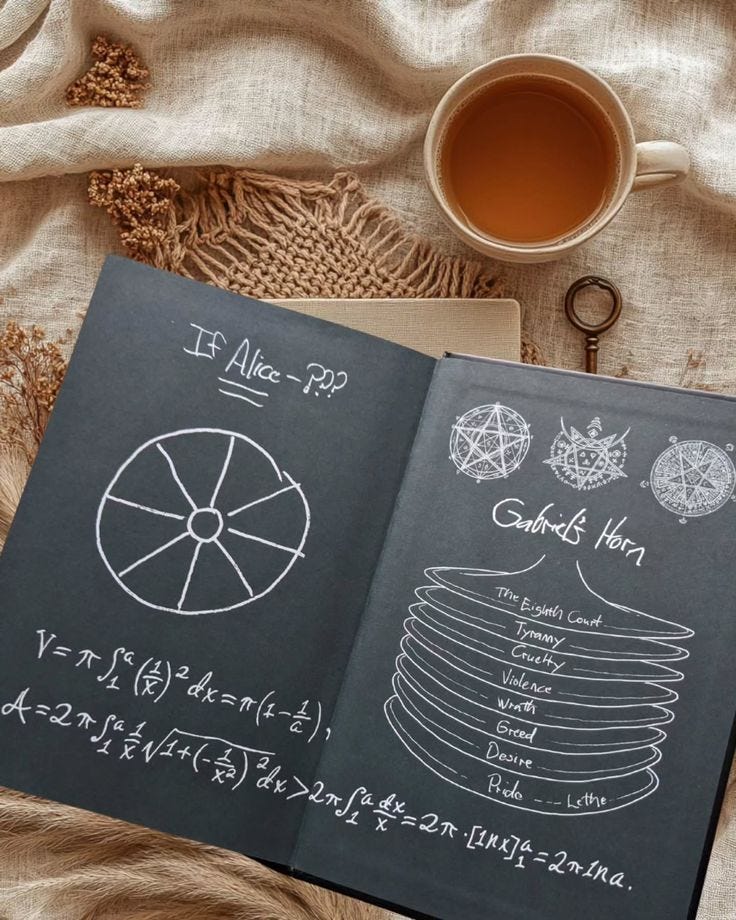 If Alice - ???
V = π ∫₁ᵃ (1/x)² dx = π(1 - 1/a),
A = 2π ∫₁ᵃ 1/x √(1 + (-1/x²)²) dx > 2π ∫₁ᵃ dx/x = 2π · [lnx]₁ᵃ = 2π lna.
Gabriel's Horn
The Eighth Court
Tyranny
Cruelty
Violence
Wrath
Greed
Desire
Pride --- Lethe